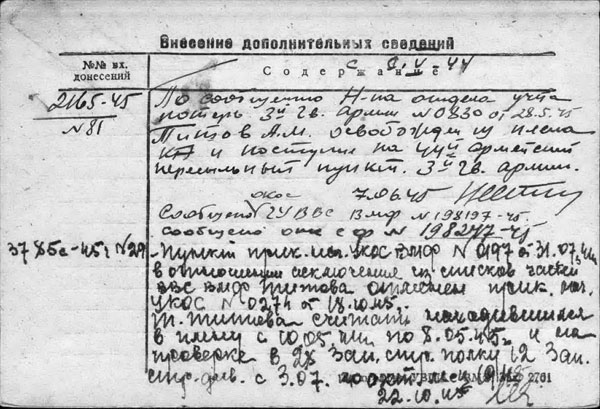 Внесение дополнительных сведений
№№ вх. донесений
Содержание
с 8.V-44
2165-45
N 81
По сообщению Н-ка отдела учета
потерь 3й Гв. армии N 0830 от 28.5.45
Титов А.М. освобожден из плена
КА и поступил на 447й армейский
пересыльный пункт. 3й гв. армии.
7.06.45
Сообщено ОКОС ГУ ВВС ВМФ N 198197-45.
сообщено N 198247-45
3785с-45г N 29
Пункт прик. нач. УКОС ВМФ N 0197 от 31.07.44г
в отношении исключения из списков частей
ВВС ВМФ Титова отменен прик. нач.
УКОС N 0274 от 13.10.45г.
Т. Титова считать находившимся
в плену с 10.05.44г по 8.05.45г и на
проверке в 2 Зап. стр. полку 12 Зап.
стр. див. с 3.07.
22.10.45